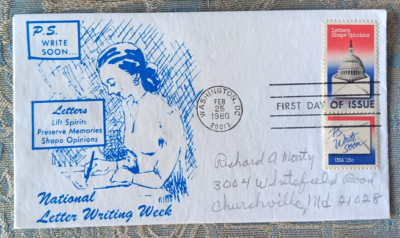 P.S.
WRITE
SOON...
Letters
Lift Spirits
Preserve Memories
Shape Opinions
National
Letter Writing Week
WASHINGTON, DC
FEB
25
1980
20013
FIRST DAY OF ISSUE
Letters
Shape Opinions
P.S. Write
Soon
USA 15c
Richard A Morty
3004 Whitefield Road
Churchville, Md 21028